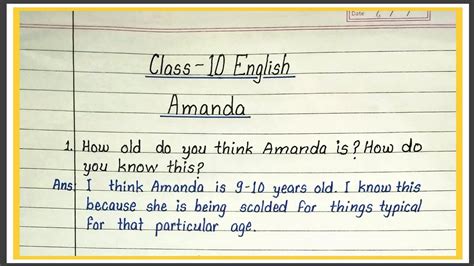 Date 6 / /
Class-10 English
Amanda
1. How old do you think Amanda is? How do
you know this?
Ans: I think Amanda is 9-10 years old. I know this
because she is being scolded for things typical
for that particular age.